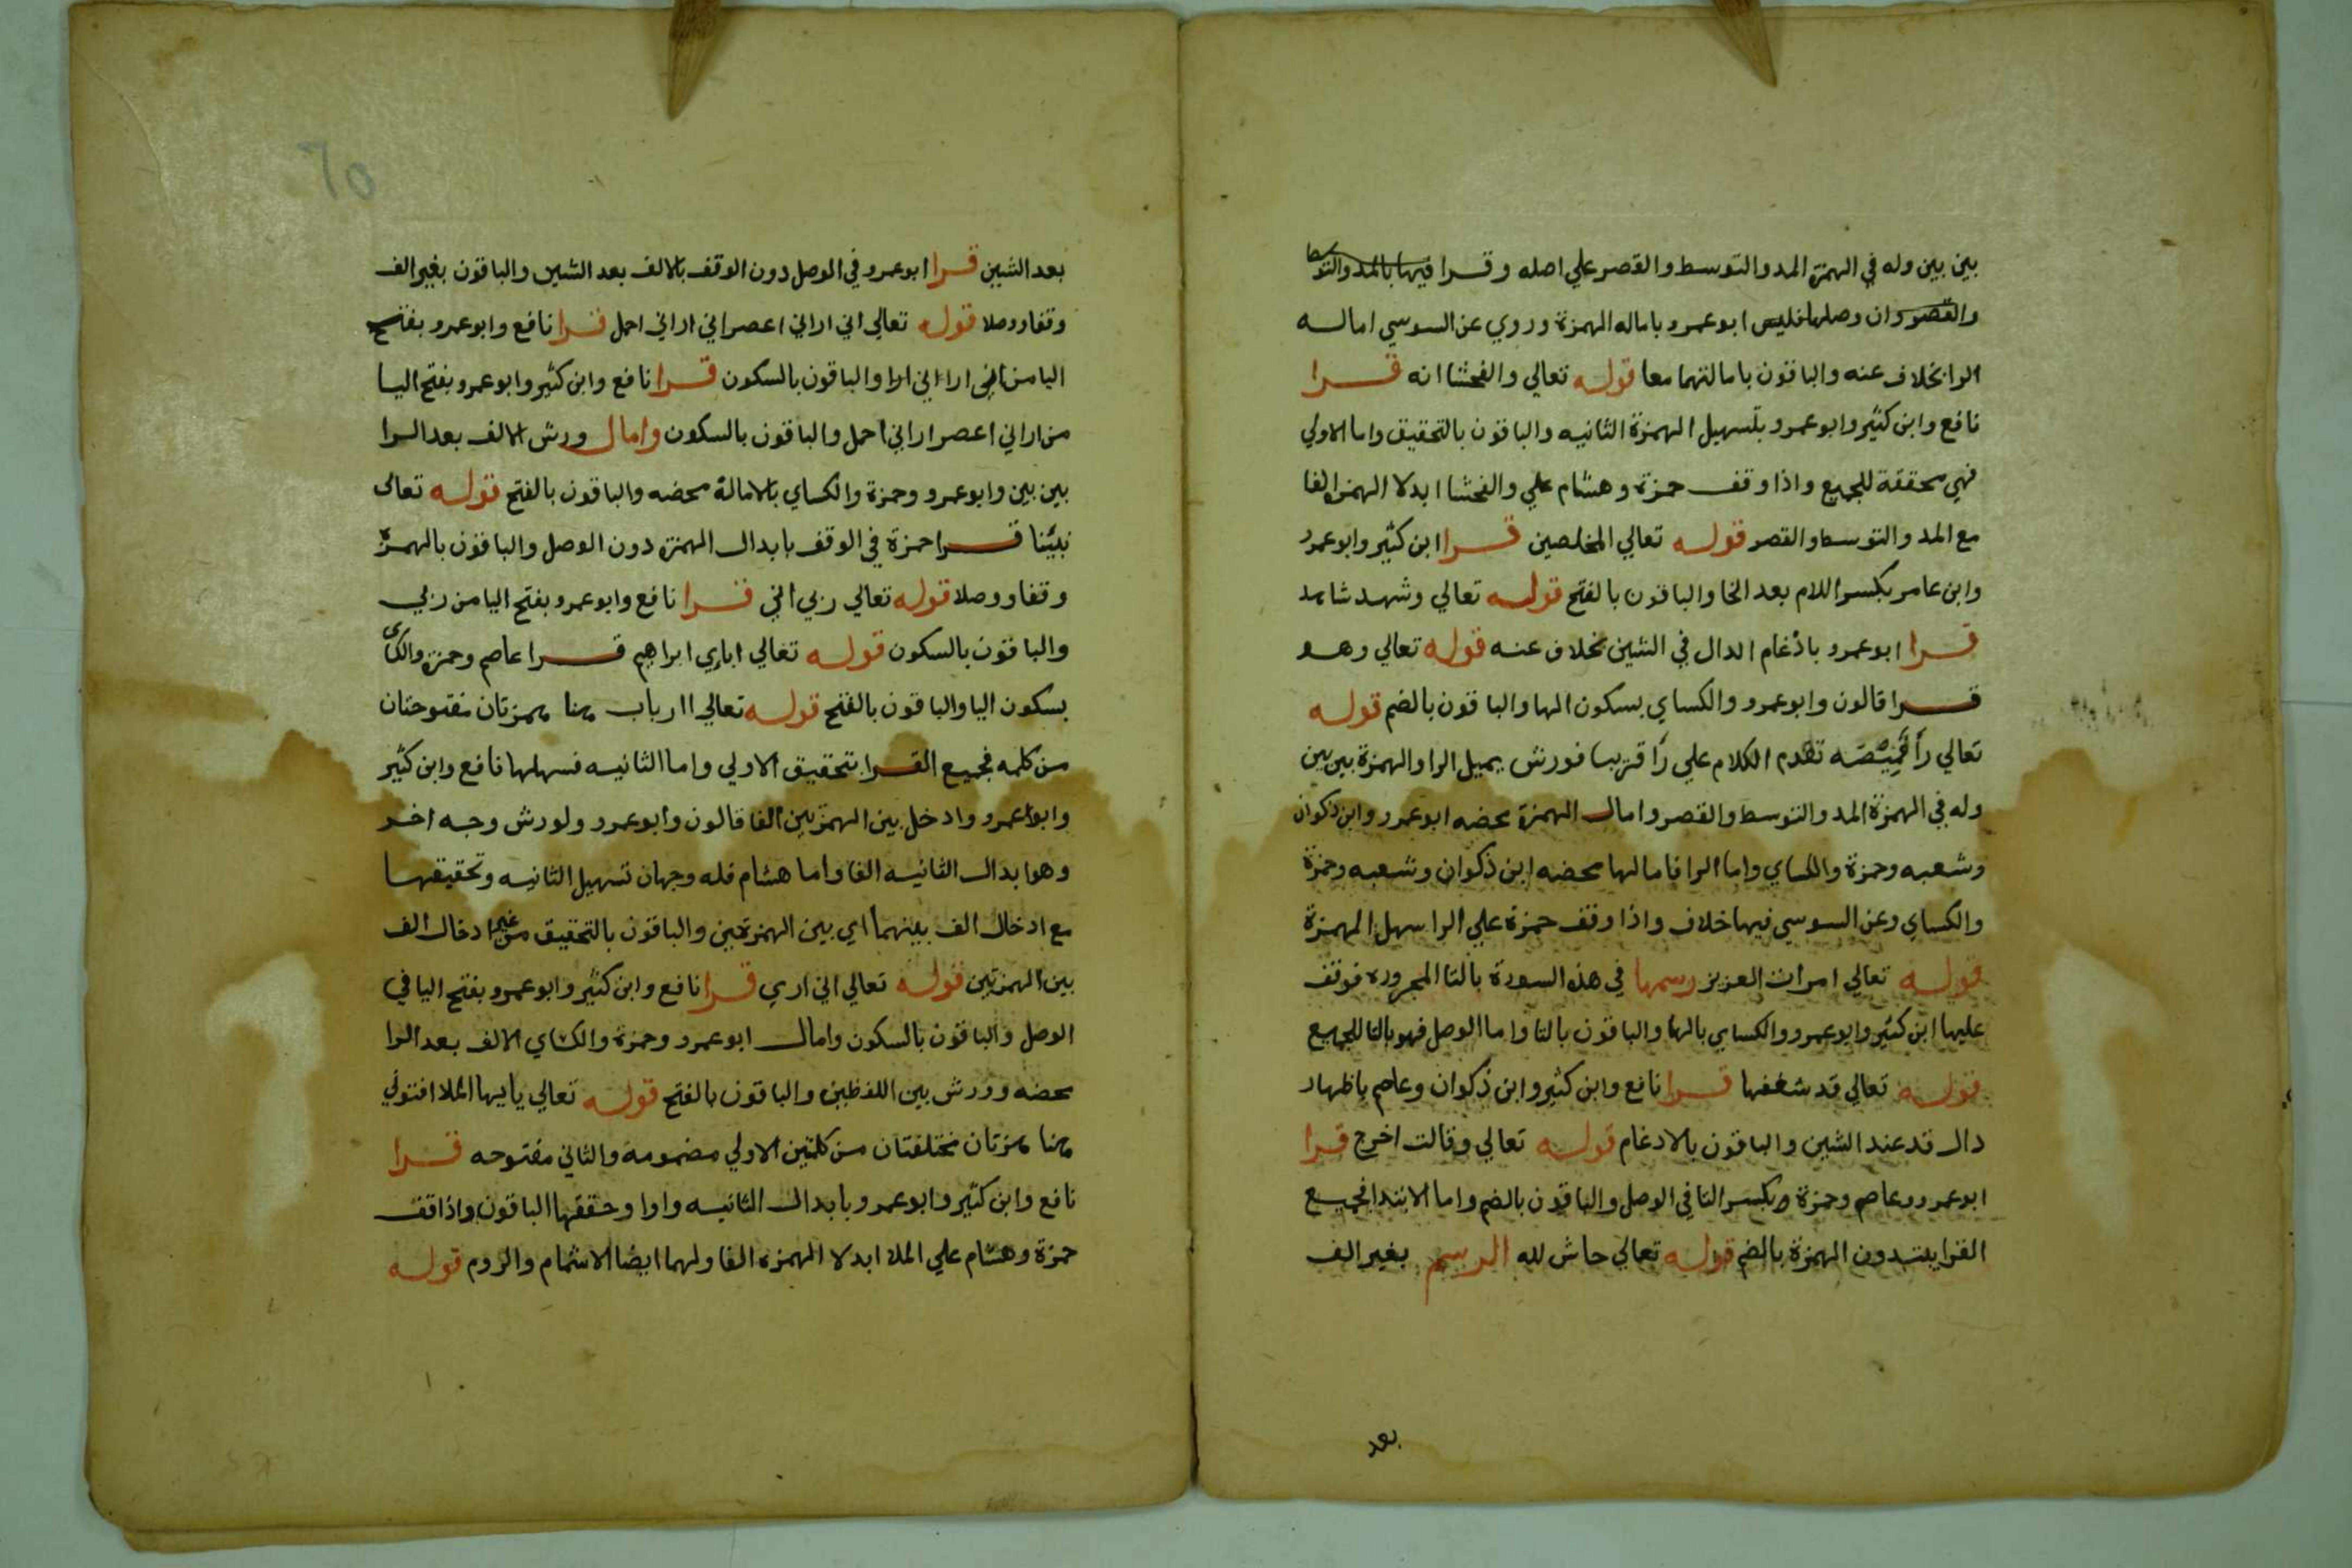 بين بين وله في الهمزة المد والتوسط والقصر علي اصله وقرا فيها بالمد والتوسط
والقصر وان وصلها فليس ابو عمرو باماله الهمزة وروي عن السوسي اماله
الرا بخلاف عنه والباقون بامالتهما معا قوله تعالي والفحشا انه قرا
نافع وابن كثير وابو عمرو بتسهيل الهمزة الثانيه والباقون بالتحقيق واما الاولي
فهي محققة للجميع واذا وقف حمزة وهشام علي والفحشا ابدلا الهمزة الفا
مع المد والتوسط والقصر قوله تعالي المخلصين قرا ابن كثير وابو عمرو
وابن عامر بكسر اللام بعد الخا والباقون بالفتح قوله تعالي وشهد شاهد
قرا ابو عمرو بادغام الدال في الشين بخلاف عنه قوله تعالي وهو
قرا قالون وابو عمرو والكساي بسكون الها والباقون بالضم قوله
تعالي رأ قميصه تقدم الكلام علي رأ قريبا فورش يميل الرا والهمزة بين بين
وله في الهمزة المد والتوسط والقصر وامال الهمزة محضه ابو عمرو وابن ذكوان
وشعبه وحمزة والكساي واما الرا فامالها محضه ابن ذكوان وشعبه وحمزة
والكساي وعن السوسي فيها خلاف واذا وقف حمزة علي الرا سهل الهمزة
قوله تعالي امرات العزيز رسمها في هذه السورة بالتا المجروره فوقف
عليها ابن كثير وابو عمرو والكساي بالها والباقون بالتا واما الوصل فهو بالتا للجميع
قوله تعالي قد شغفها قرا نافع وابن كثير وابن ذكوان وعاصم باظهار
دال قد عند الشين والباقون بالادغام قوله تعالي وقالت اخرج قرا
ابو عمرو وعاصم وحمزة وبكسر التا في الوصل والباقون بالضم واما الابتدا فجميع
القرا يبتدون الهمزة بالضم قوله تعالي حاش لله الرسم بغير الف
بعد
٦٥
بعد الشين قرا ابو عمرو في الوصل دون الوقف بالالف بعد الشين والباقون بغير الف
وقفا ووصلا قوله تعالي اني اراني اعصر اني اراني احمل قرا نافع وابو عمرو بفتح
اليا من اني ارا اني ارا والباقون بالسكون قرا نافع وابن كثير وابو عمرو بفتح اليا
من اراني اعصر اراني احمل والباقون بالسكون وامال ورش الالف بعد الرا
بين بين وابو عمرو وحمزة والكساي بالامالة محضه والباقون بالفتح قوله تعالى
نبئنا قرا حمزة في الوقف بابدال الهمزة دون الوصل والباقون بالهمزة
وقفا ووصلا قوله تعالي ربي اني قرا نافع وابو عمرو بفتح اليا من ربي
والباقون بالسكون قوله تعالي اباءي ابراهيم قرا عاصم وحمزة والكساي
بسكون اليا والباقون بالفتح قوله تعالي اارباب هنا همزتان مفتوحتان
من كلمه فجميع القرا بتحقيق الاولي واما الثانيه فسهلها نافع وابن كثير
وابو عمرو وادخل بين الهمزتين الفا قالون وابو عمرو ولورش وجه اخر
وهو ابدال الثانيه الفا واما هشام فله وجهان تسهيل الثانيه وتحقيقها
مع ادخال الف بينهما اي بين الهمزتين والباقون بالتحقيق من غير ادخال الف
بين الهمزتين قوله تعالي اني اري قرا نافع وابن كثير وابو عمرو بفتح اليا في
الوصل والباقون بالسكون وامال ابو عمرو وحمزة والكساي الالف بعد الرا
محضه وورش بين اللفظين والباقون بالفتح قوله تعالي يا يها الملا افتوني
هنا همزتان مختلفتان من كلمتين الاولي مضمومة والثاني مفتوحه قرا
نافع وابن كثير وابو عمرو بابدال الثانيه واوا وحققها الباقون واذا قف
حمزة وهشام علي الملا ابدلا الهمزه الفا ولهما ايضا الاشمام والروم قوله